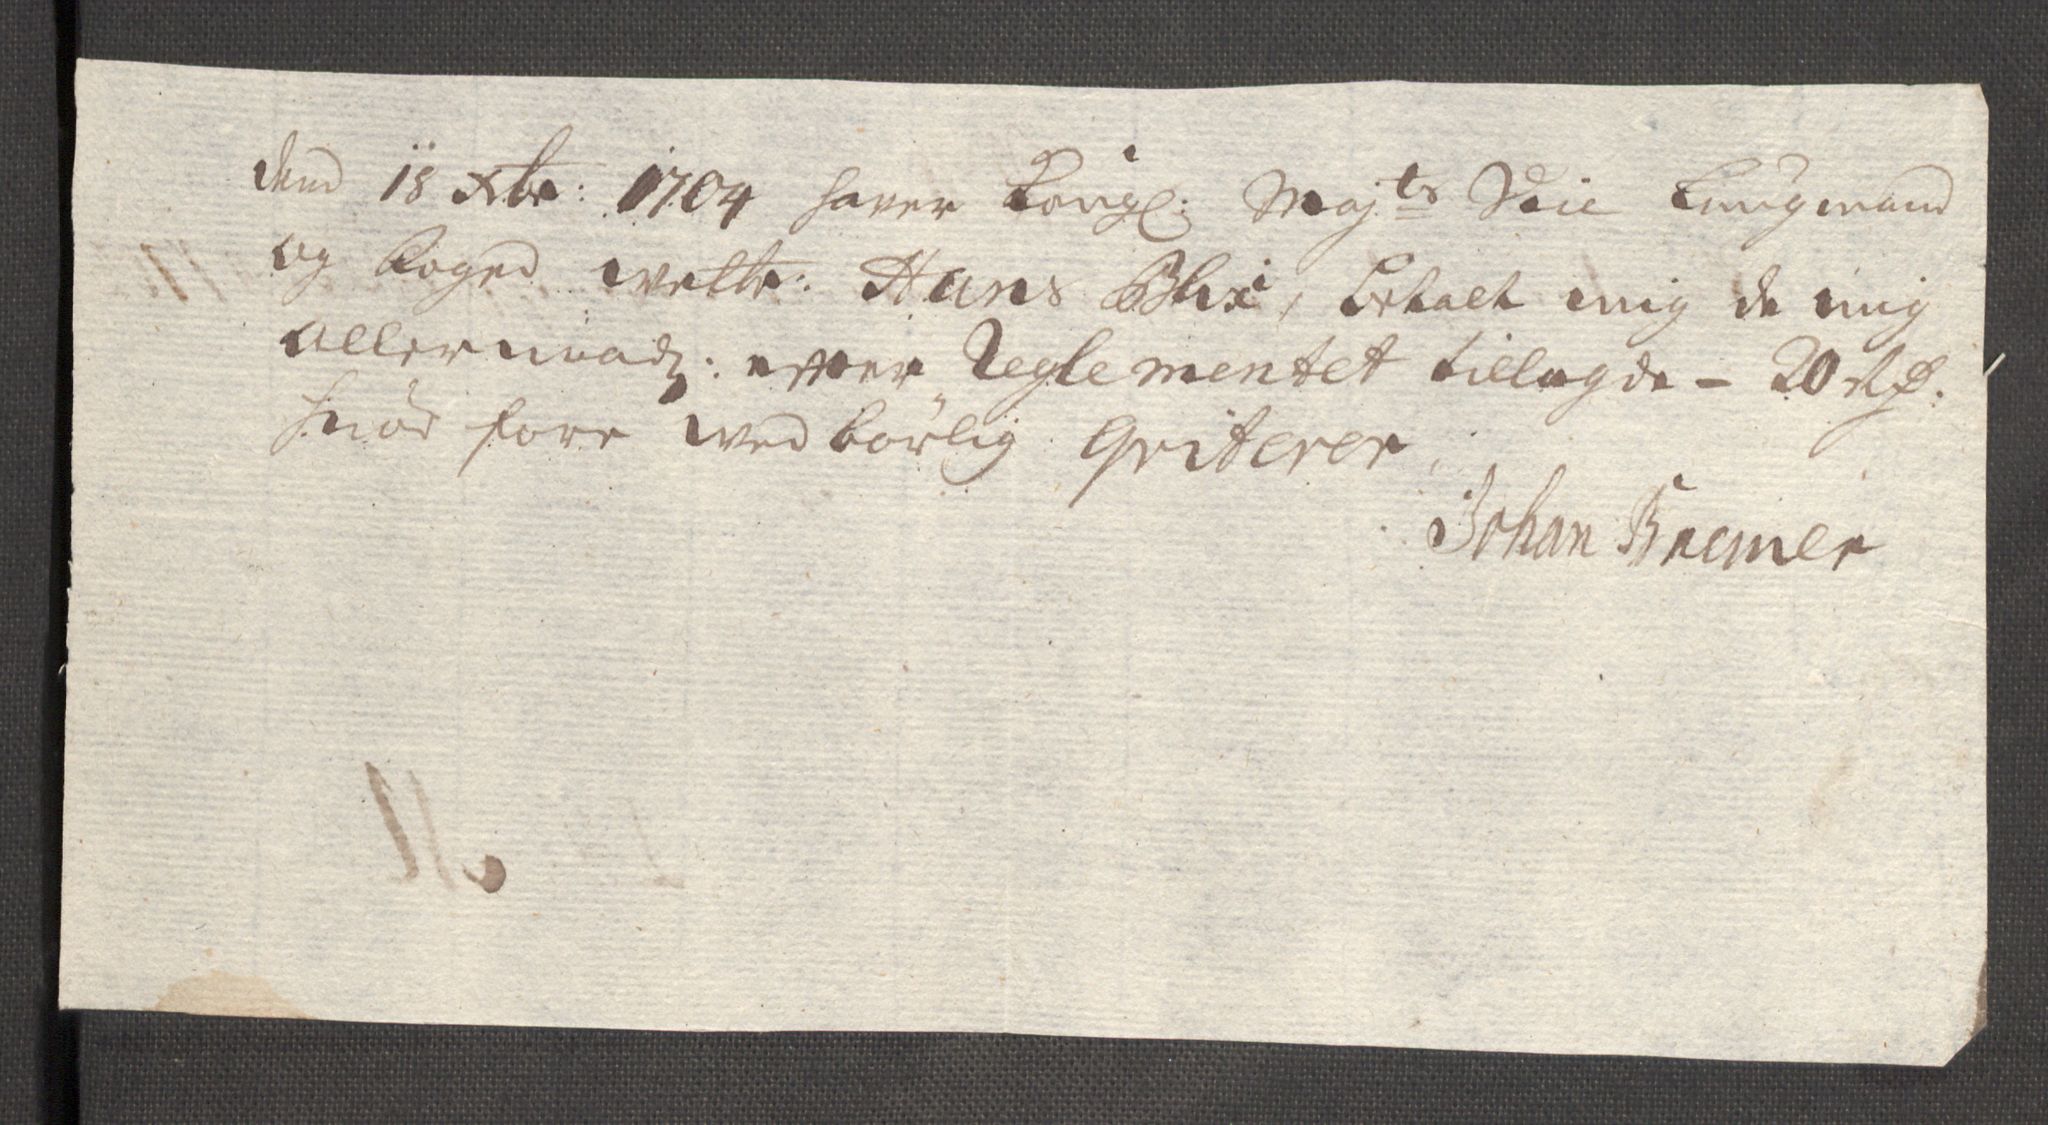 dend 18 Xbr: 1704 haver Kongl: Majts Vice Laugmand
og foged welbr: Hans Blix, betalt mig de mig
allernaadg: effter Reglementet tillagde – 20 Rd.
hvor fore wed børlig Qviterer
Johan Bremer